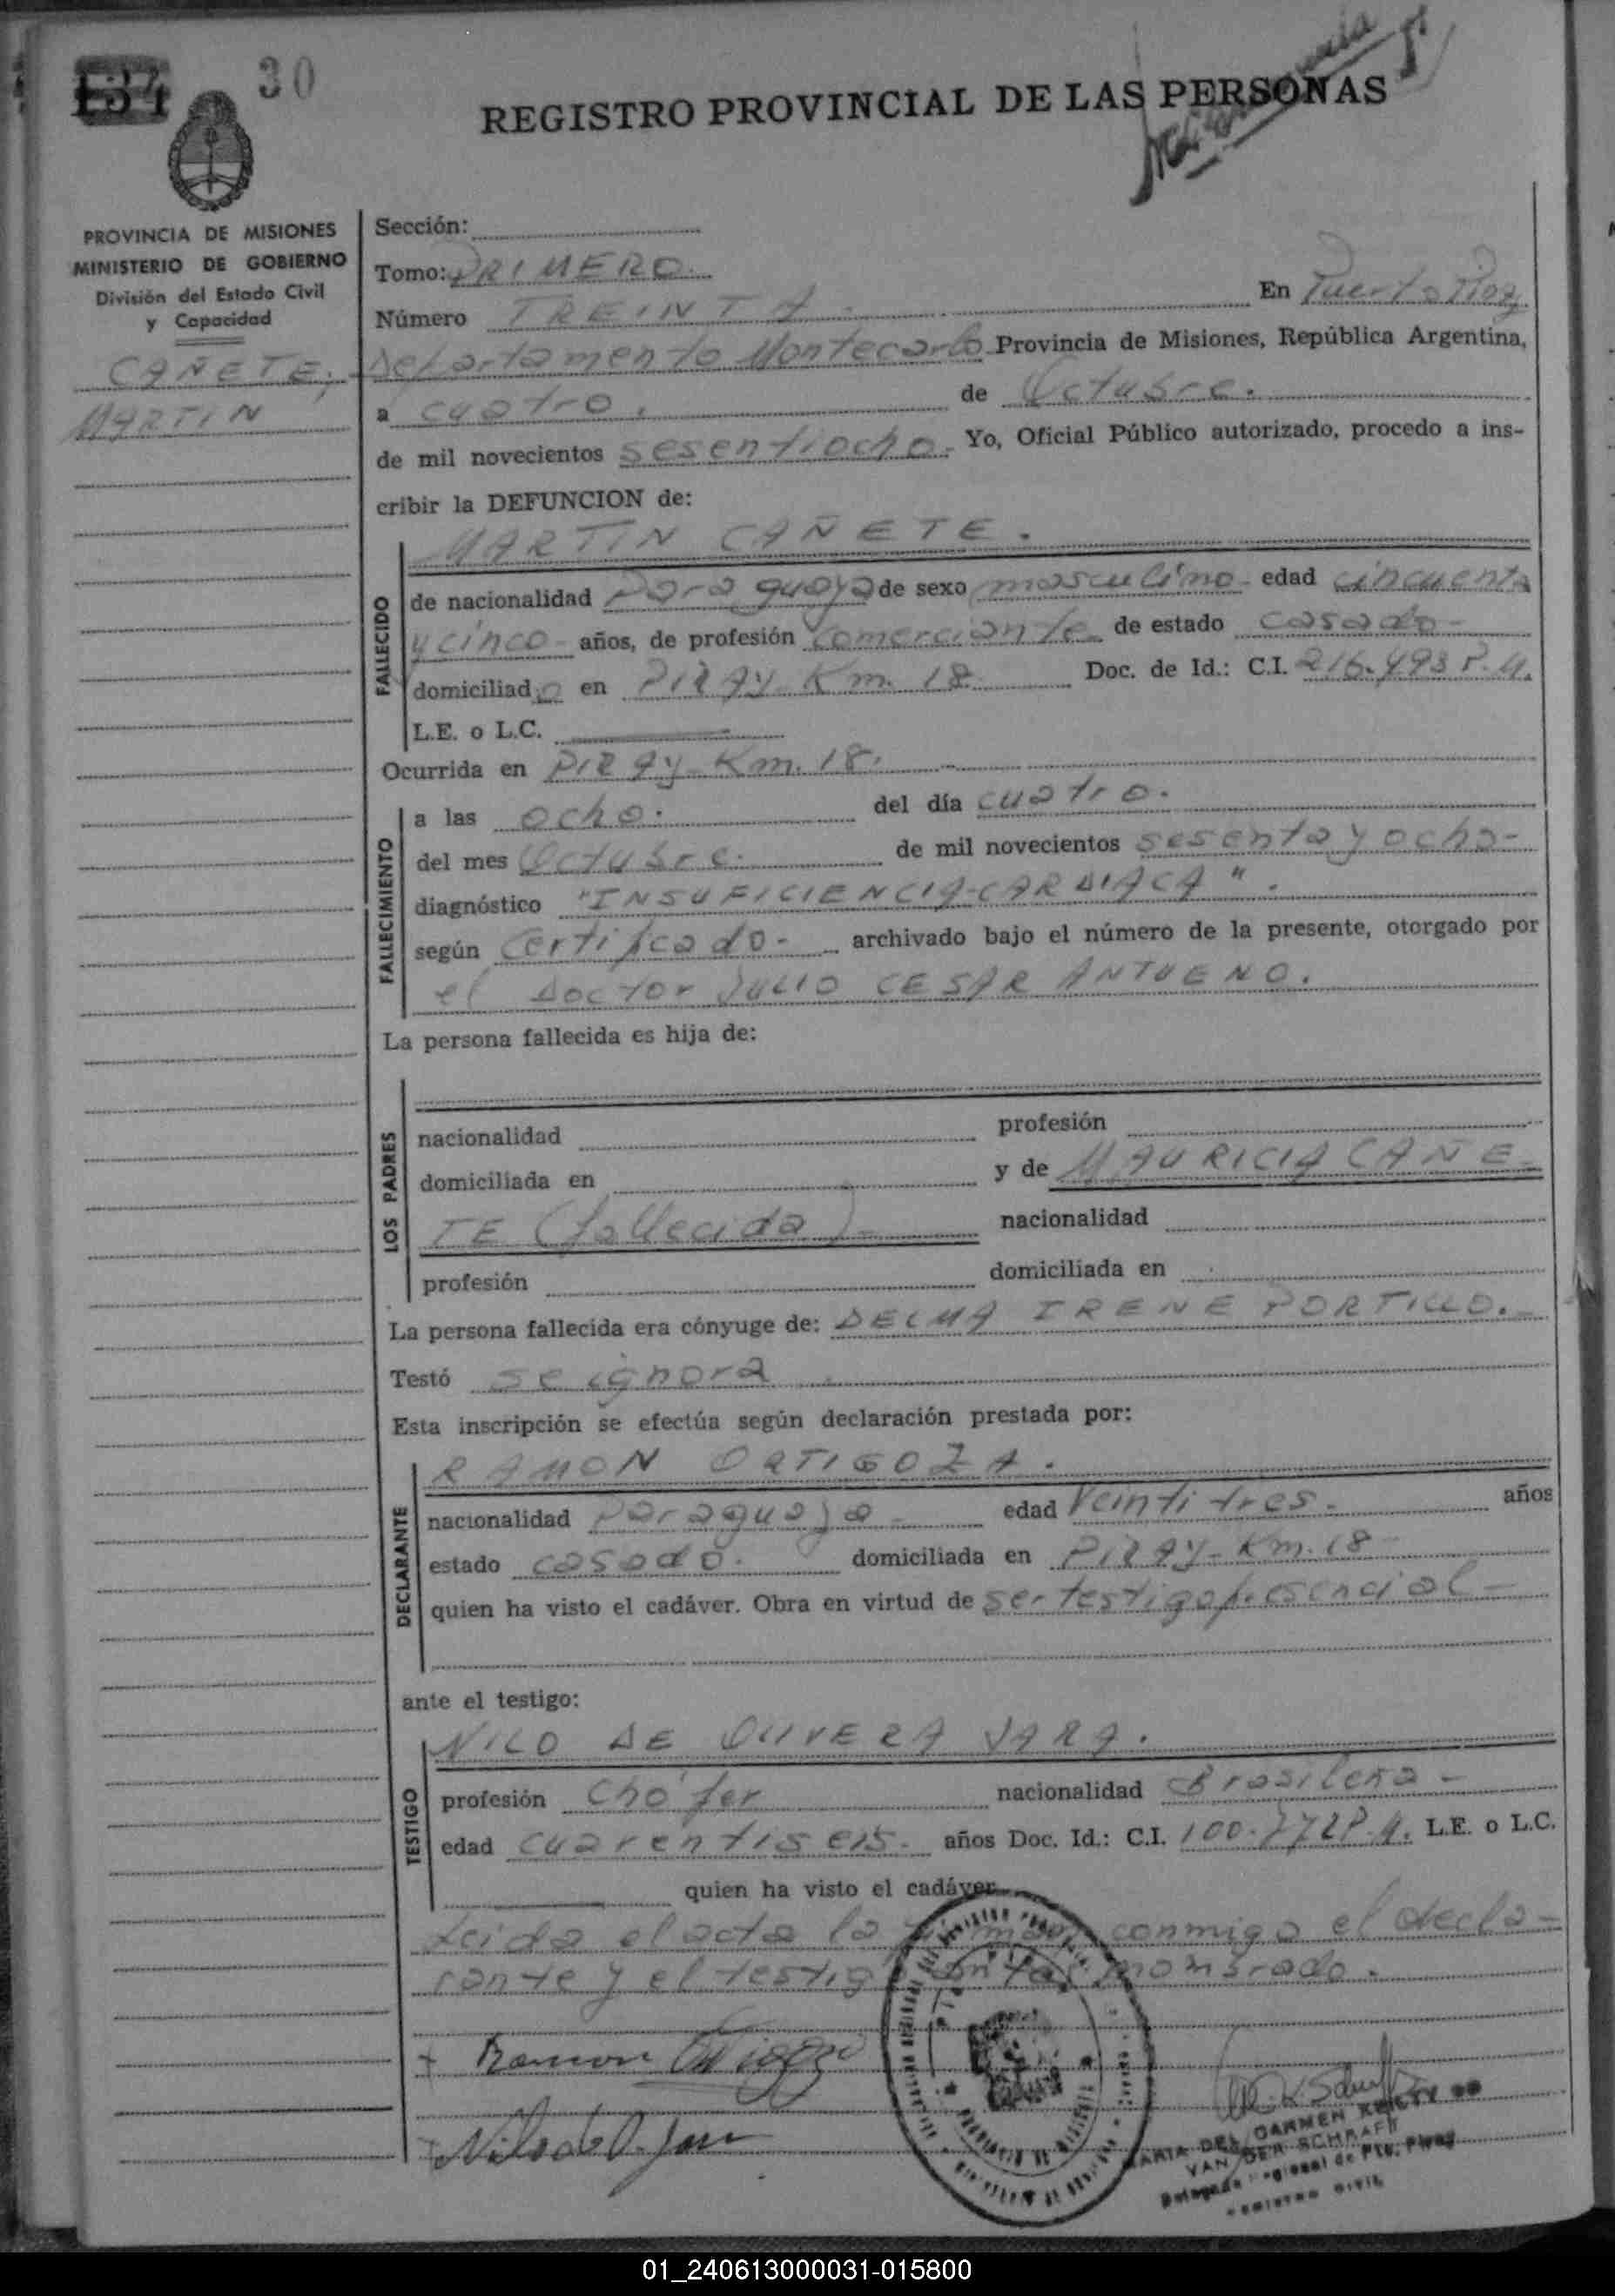 134 30
REGISTRO PROVINCIAL DE LAS PERSONAS
PROVINCIA DE MISIONES
MINISTERIO DE GOBIERNO
División del Estado Civil
y Capacidad
CAÑETE,
MARTIN
Sección:
Tomo: PRIMERO.
Número TREINTA. En Puerto Piray
Departamento Montecarlo Provincia de Misiones, República Argentina,
a cuatro. de Octubre.
de mil novecientos sesentiocho. Yo, Oficial Público autorizado, procedo a ins-
cribir la DEFUNCION de:
MARTIN CAÑETE.
FALLECIDO
de nacionalidad Paraguaya de sexo masculino edad cincuenta
y cinco años, de profesión comerciante de estado casado
domiciliado en PIRAY Km. 18 Doc. de Id.: C.I. 216.493 P.M.
L.E. o L.C.
Ocurrida en PIRAY Km. 18.
FALLECIMIENTO
a las ocho. del día cuatro.
del mes Octubre. de mil novecientos sesenta y ocho
diagnóstico "INSUFICIENCIA-CARDIACA".
según certificado archivado bajo el número de la presente, otorgado por
el Doctor JULIO CESAR ANTUENO.
La persona fallecida es hija de:
LOS PADRES
nacionalidad profesión
domiciliada en y de MAURICIA CAÑE-
TE (fallecida) nacionalidad
profesión domiciliada en
La persona fallecida era cónyuge de: DELMA IRENE PORTILLO.
Testó se ignora
Esta inscripción se efectúa según declaración prestada por:
RAMON ORTIGOZA.
DECLARANTE
nacionalidad Paraguaya edad Veintitres. años
estado casado. domiciliada en PIRAY-Km. 18
quien ha visto el cadáver. Obra en virtud de ser testigo presencial
ante el testigo:
NILO DE OLIVERA JARA.
TESTIGO
profesión Chófer nacionalidad Brasilera
edad cuarentiseis. años Doc. Id.: C.I. L.E. o L.C.
quien ha visto el cadáver
Leida el acta la firman conmigo el decla-
rante y el testigo nombrado.
Ramon Ortigoza
Nilo de O. Jara
MARIA DEL CARMEN DE
VAN DER SCHRAAFT
Delegada Regional de Pto. Piray
REGISTRO CIVIL
01_240613000031-015800